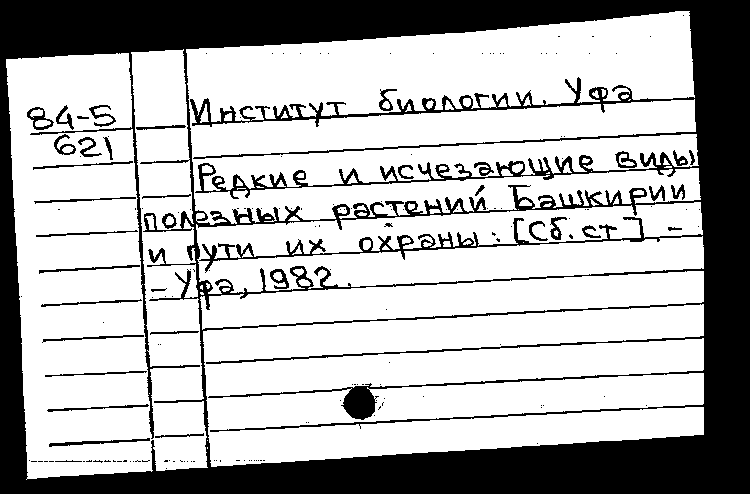 84-5
621
Институт биологии. Уфа
Редкие и исчезающие виды
полезных растений Башкирии
и пути их охраны: [Сб. ст]. -
- Уфа, 1982.